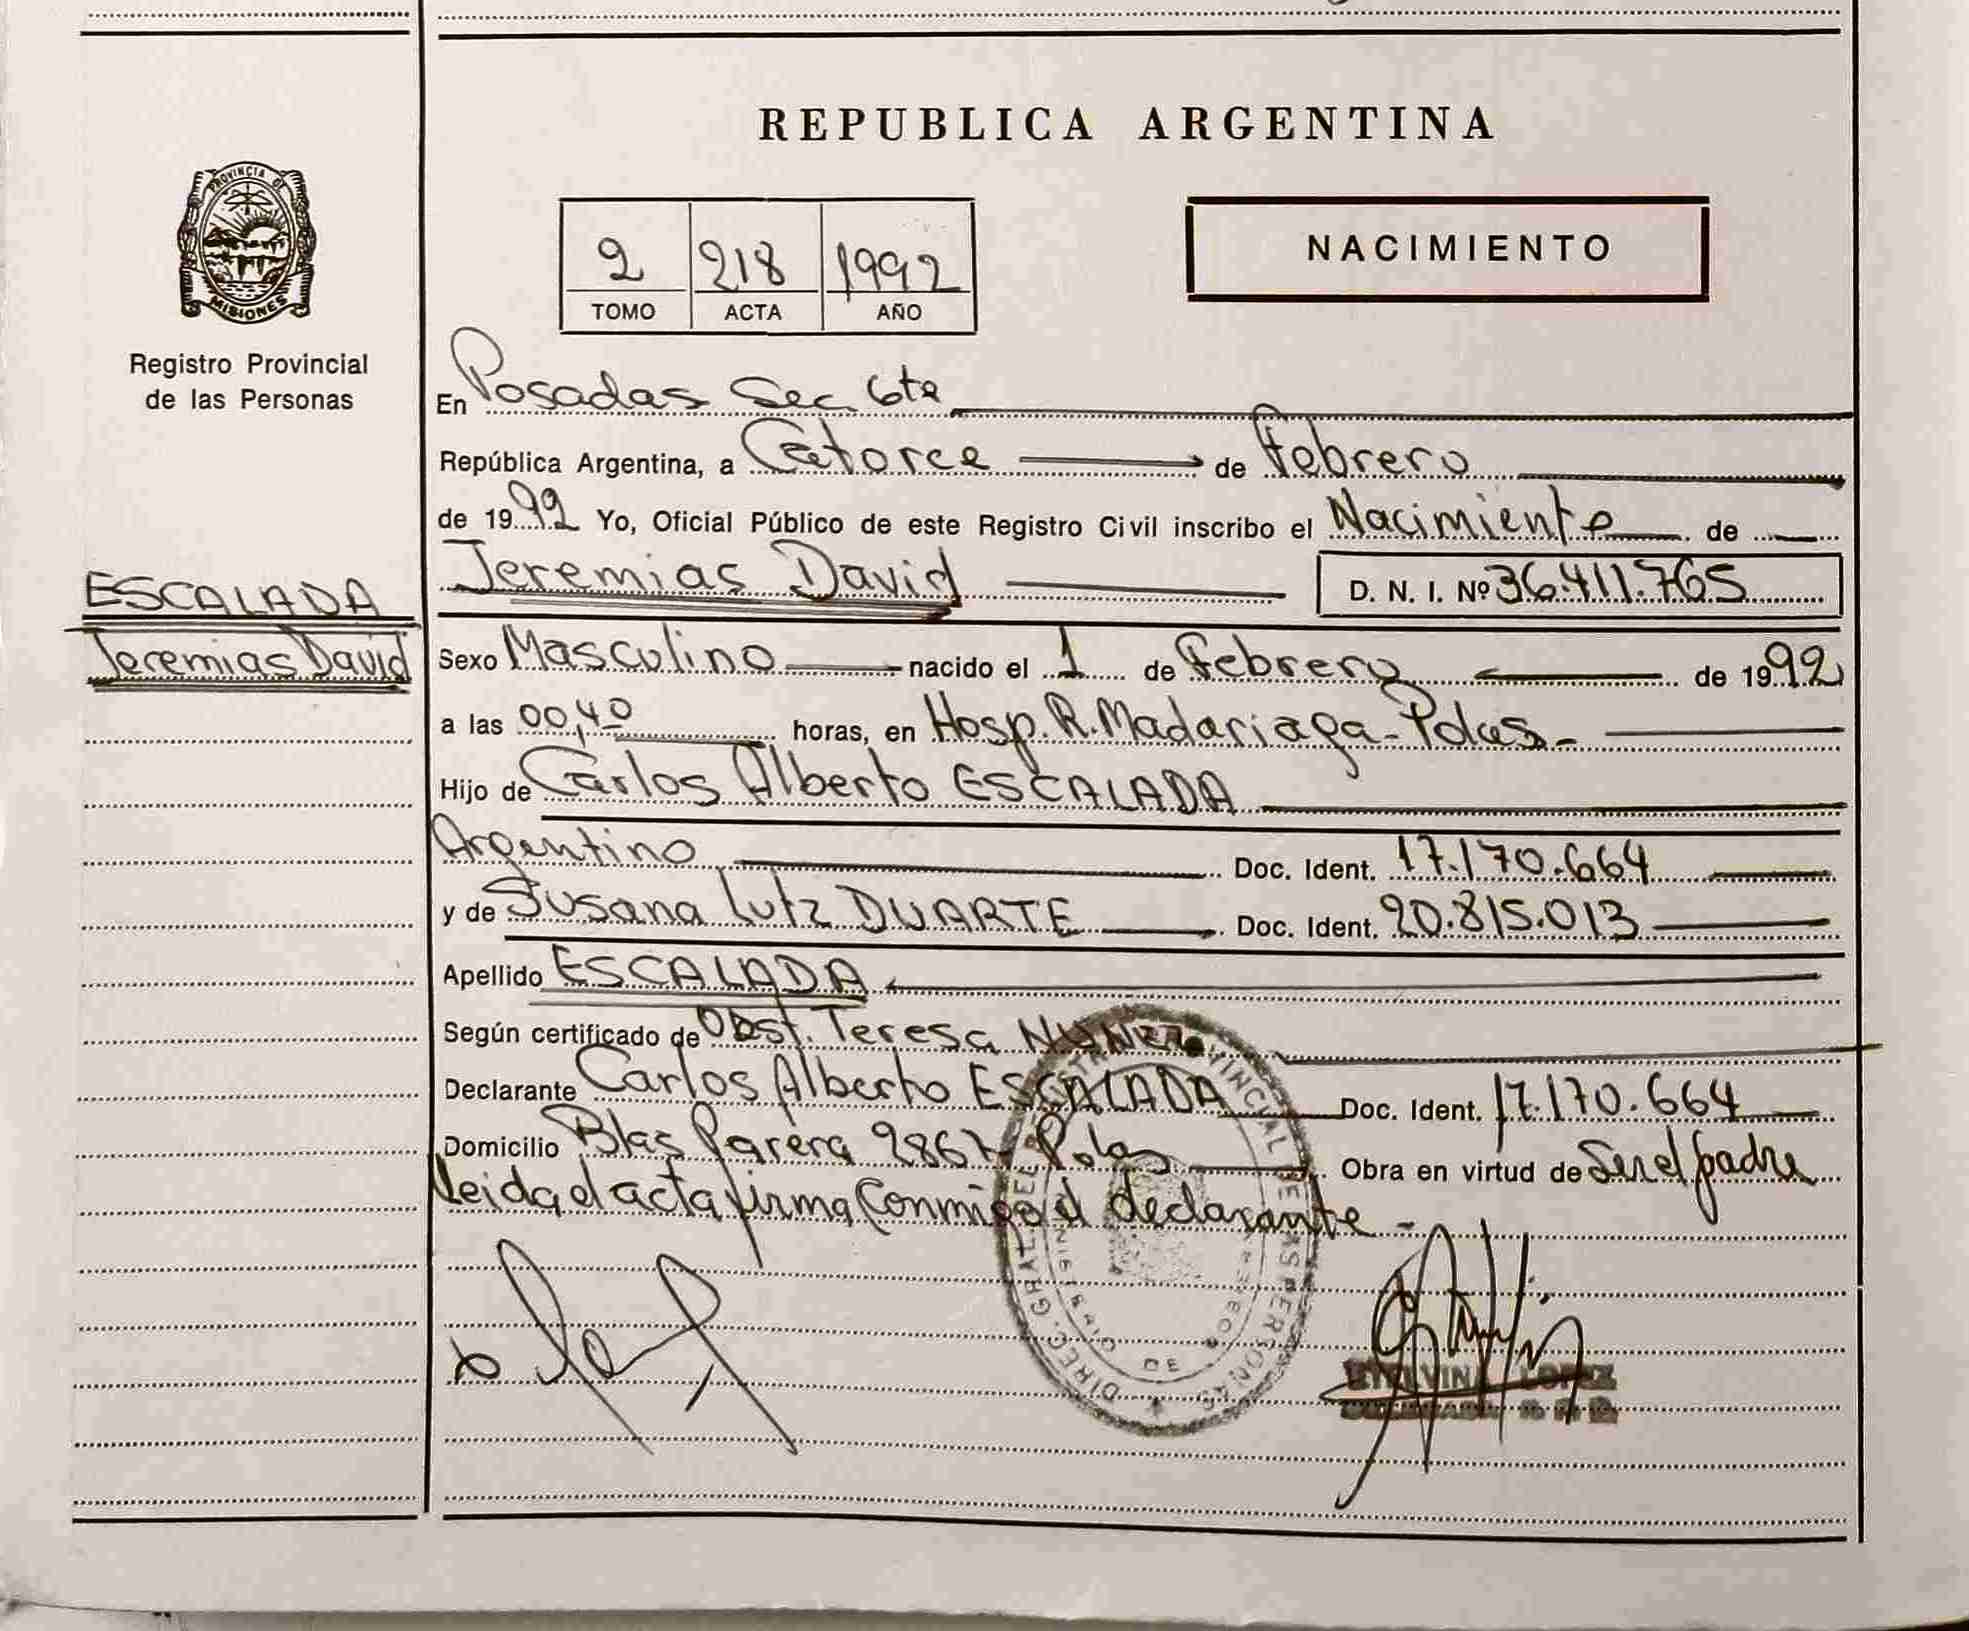 REPUBLICA ARGENTINA
PROVINCIA DE
MISIONES
Registro Provincial
de las Personas
2 218 1992
TOMO ACTA AÑO
NACIMIENTO
En Posadas Sec. 6ta
República Argentina, a Catorce de Febrero
de 1992 Yo, Oficial Público de este Registro Civil inscribo el Nacimiento de
Jeremias David D. N. I. Nº 36.411.765
ESCALADA
Jeremias David
Sexo Masculino nacido el 1 de Febrero de 1992
a las 00,40 horas, en Hosp. R. Madariaga - Pdas -
Hijo de Carlos Alberto ESCALADA
Argentino Doc. Ident. 17.170.664
y de Susana Lutz DUARTE Doc. Ident. 20.815.013
Apellido ESCALADA
Según certificado de Obst. Teresa NUÑEZ
Declarante Carlos Alberto ESCALADA Doc. Ident. 17.170.664
Domicilio Blas Parera 2867 Pdas Obra en virtud de Ser el padre
Leida el acta firma Conmigo el declarante -
DIREC. GRAL. DEL REGISTRO PROVINCIAL DE LAS PERSONAS
DE
LOPEZ